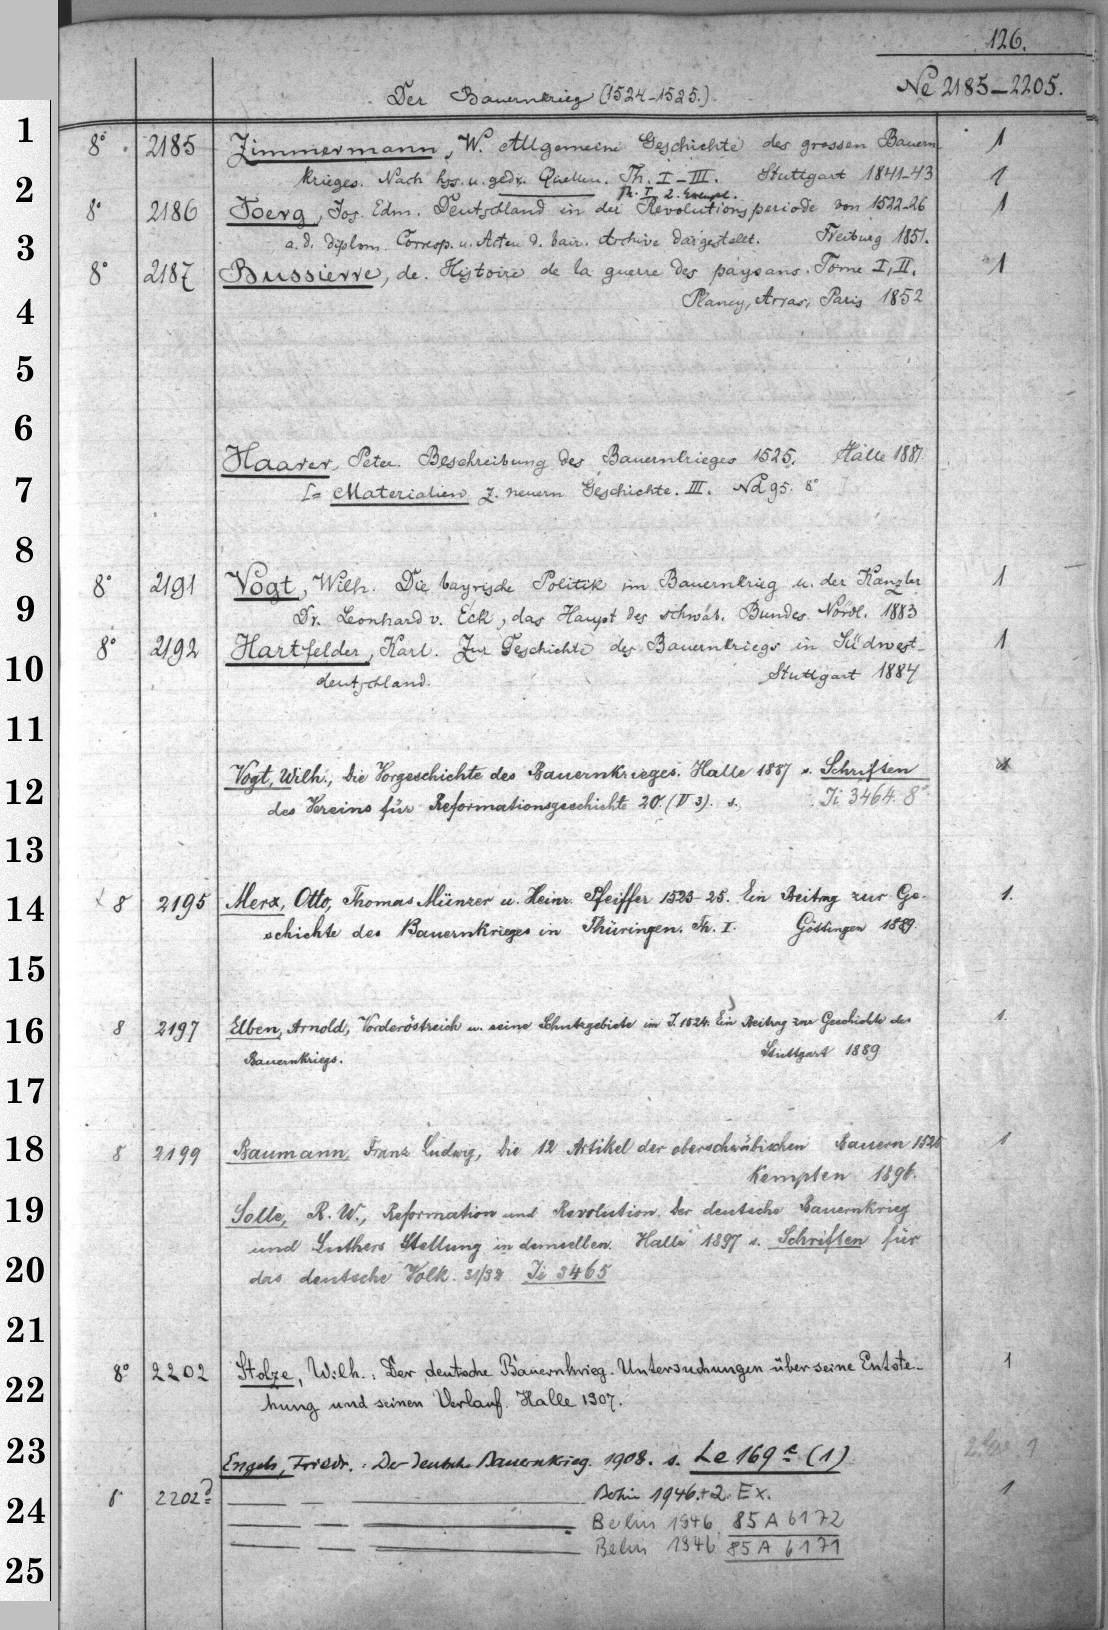 126.
Ne 2185–2205.
Der Bauernkrieg (1524–1525.)
8° 2185 Zimmermann, W. Allgemeine Geschichte des grossen Bauern- 1
krieges. Nach hss. u. gedr. Quellen. Th. I–III. Stuttgart 1841–43 1
Th. I 2. Exempl.
8° 2186 Joerg, Jos. Edm. Deutschland in der Revolutionsperiode von 1522–26 1
a. d. diplom. Corresp. u. Acten d. bair. Archive dargestellt. Freiburg 1851.
8° 2187 Bussierre, de. Histoire de la guerre des paysans. Tome I, II. 1
Plancy, Arras, Paris 1852
Haarer, Peter. Beschreibung des Bauernkrieges 1525. Halle 1881
[= Materialien z. neuern Geschichte. III. Nd 95. 8°
8° 2191 Vogt, Wilh. Die bayrische Politik im Bauernkrieg u. der Kanzler 1
Dr. Leonhard v. Eck, das Haupt des schwäb. Bundes. Nördl. 1883
8° 2192 Hartfelder, Karl. Zur Geschichte des Bauernkriegs in Südwest- 1
deutschland. Stuttgart 1884
Vogt, Wilh., Die Vorgeschichte des Bauernkrieges. Halle 1887 s. Schriften 1
des Vereins für Reformationsgeschichte 20. (V 3). s. Ji 3464. 8°
8 2195 Merx, Otto, Thomas Münzer u. Heinr. Pfeiffer 1523–25. Ein Beitrag zur Ge- 1.
schichte des Bauernkrieges in Thüringen. Th. I. Göttingen 1889.
8 2197 Elben, Arnold, Vorderöstreich u. seine Schutzgebiete im J. 1524. Ein Beitrag zur Geschichte des 1.
Bauernkriegs. Stuttgart 1889
8 2199 Baumann, Franz Ludwig, Die 12 Artikel der oberschwäbischen Bauern 1525 1
Kempten 1896.
Solle, R. W., Reformation und Revolution. Der deutsche Bauernkrieg
und Luthers Stellung in demselben. Halle 1897 s. Schriften für
das deutsche Volk. 31/32 Ji 3465
8° 2202 Stolze, Wilh.: Der deutsche Bauernkrieg. Untersuchungen über seine Entste- 1
hung und seinen Verlauf. Halle 1907.
Engels, Friedr.: Der deutsche Bauernkrieg. 1908. s. Le 169 e (1) 1
8 2202 d Berlin 1946. + 2. Ex. 1
Berlin 1946 85 A 6172
Berlin 1946 85 A 6171
1
2
3
4
5
6
7
8
9
10
11
12
13
14
15
16
17
18
19
20
21
22
23
24
25